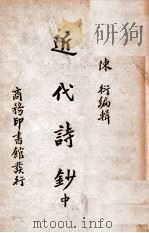 陳衍編輯
近代詩鈔中
商務印書館發行
www.duxiu.com